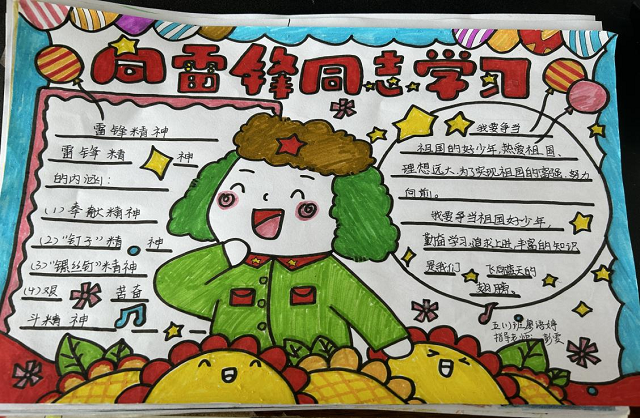 向雷锋同志学习
雷锋精神
雷锋精神
的内涵：
(1)奉献精神
(2)"钉子"精神
(3)"螺丝钉"精神
(4)艰苦奋
斗精神
我要争当
祖国的好少年,热爱祖国、
理想远大,为了实现祖国的富强,努力
向前。
我要争当祖国好少年,
勤奋学习,追求上进,丰富的知识
是我们飞向蓝天的
翅膀。
五(1)班
指导老师：彭雯